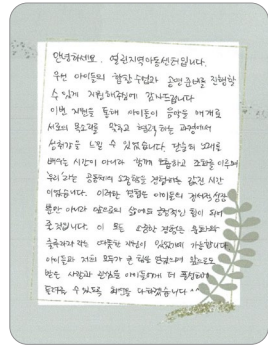 안녕하세요. 열린지역아동센터입니다.
우선 아이들의 합창 수업과 공연준비를 진행할
수 있게 지원해주심에 감사드립니다
이번 지원을 통해 아이들이 음악을 매개로
서로의 목소리를 맞추고 협력하는 과정에서
성취감을 느낄 수 있었습니다. 단순히 노래를
배우는 시간이 아니라 함께 호흡하고 조화를 이루며
'우리'라는 공동체의 소중함을 경험하는 값진 시간
이었습니다. 이러한 경험은 아이들의 정서적 성장
뿐만 아니라 앞으로의 삶에도 긍정적인 힘이 되어
줄 것입니다. 이 모든 소중한 경험은
따뜻한 지원이 있었기에 가능합니다.
아이들과 저희 모두가 큰 힘을 얻었으며 앞으로도
받은 사랑과 관심을 아이들에게 더 풍성하게
돌려줄 수 있도록 최선을 다하겠습니다 ^^